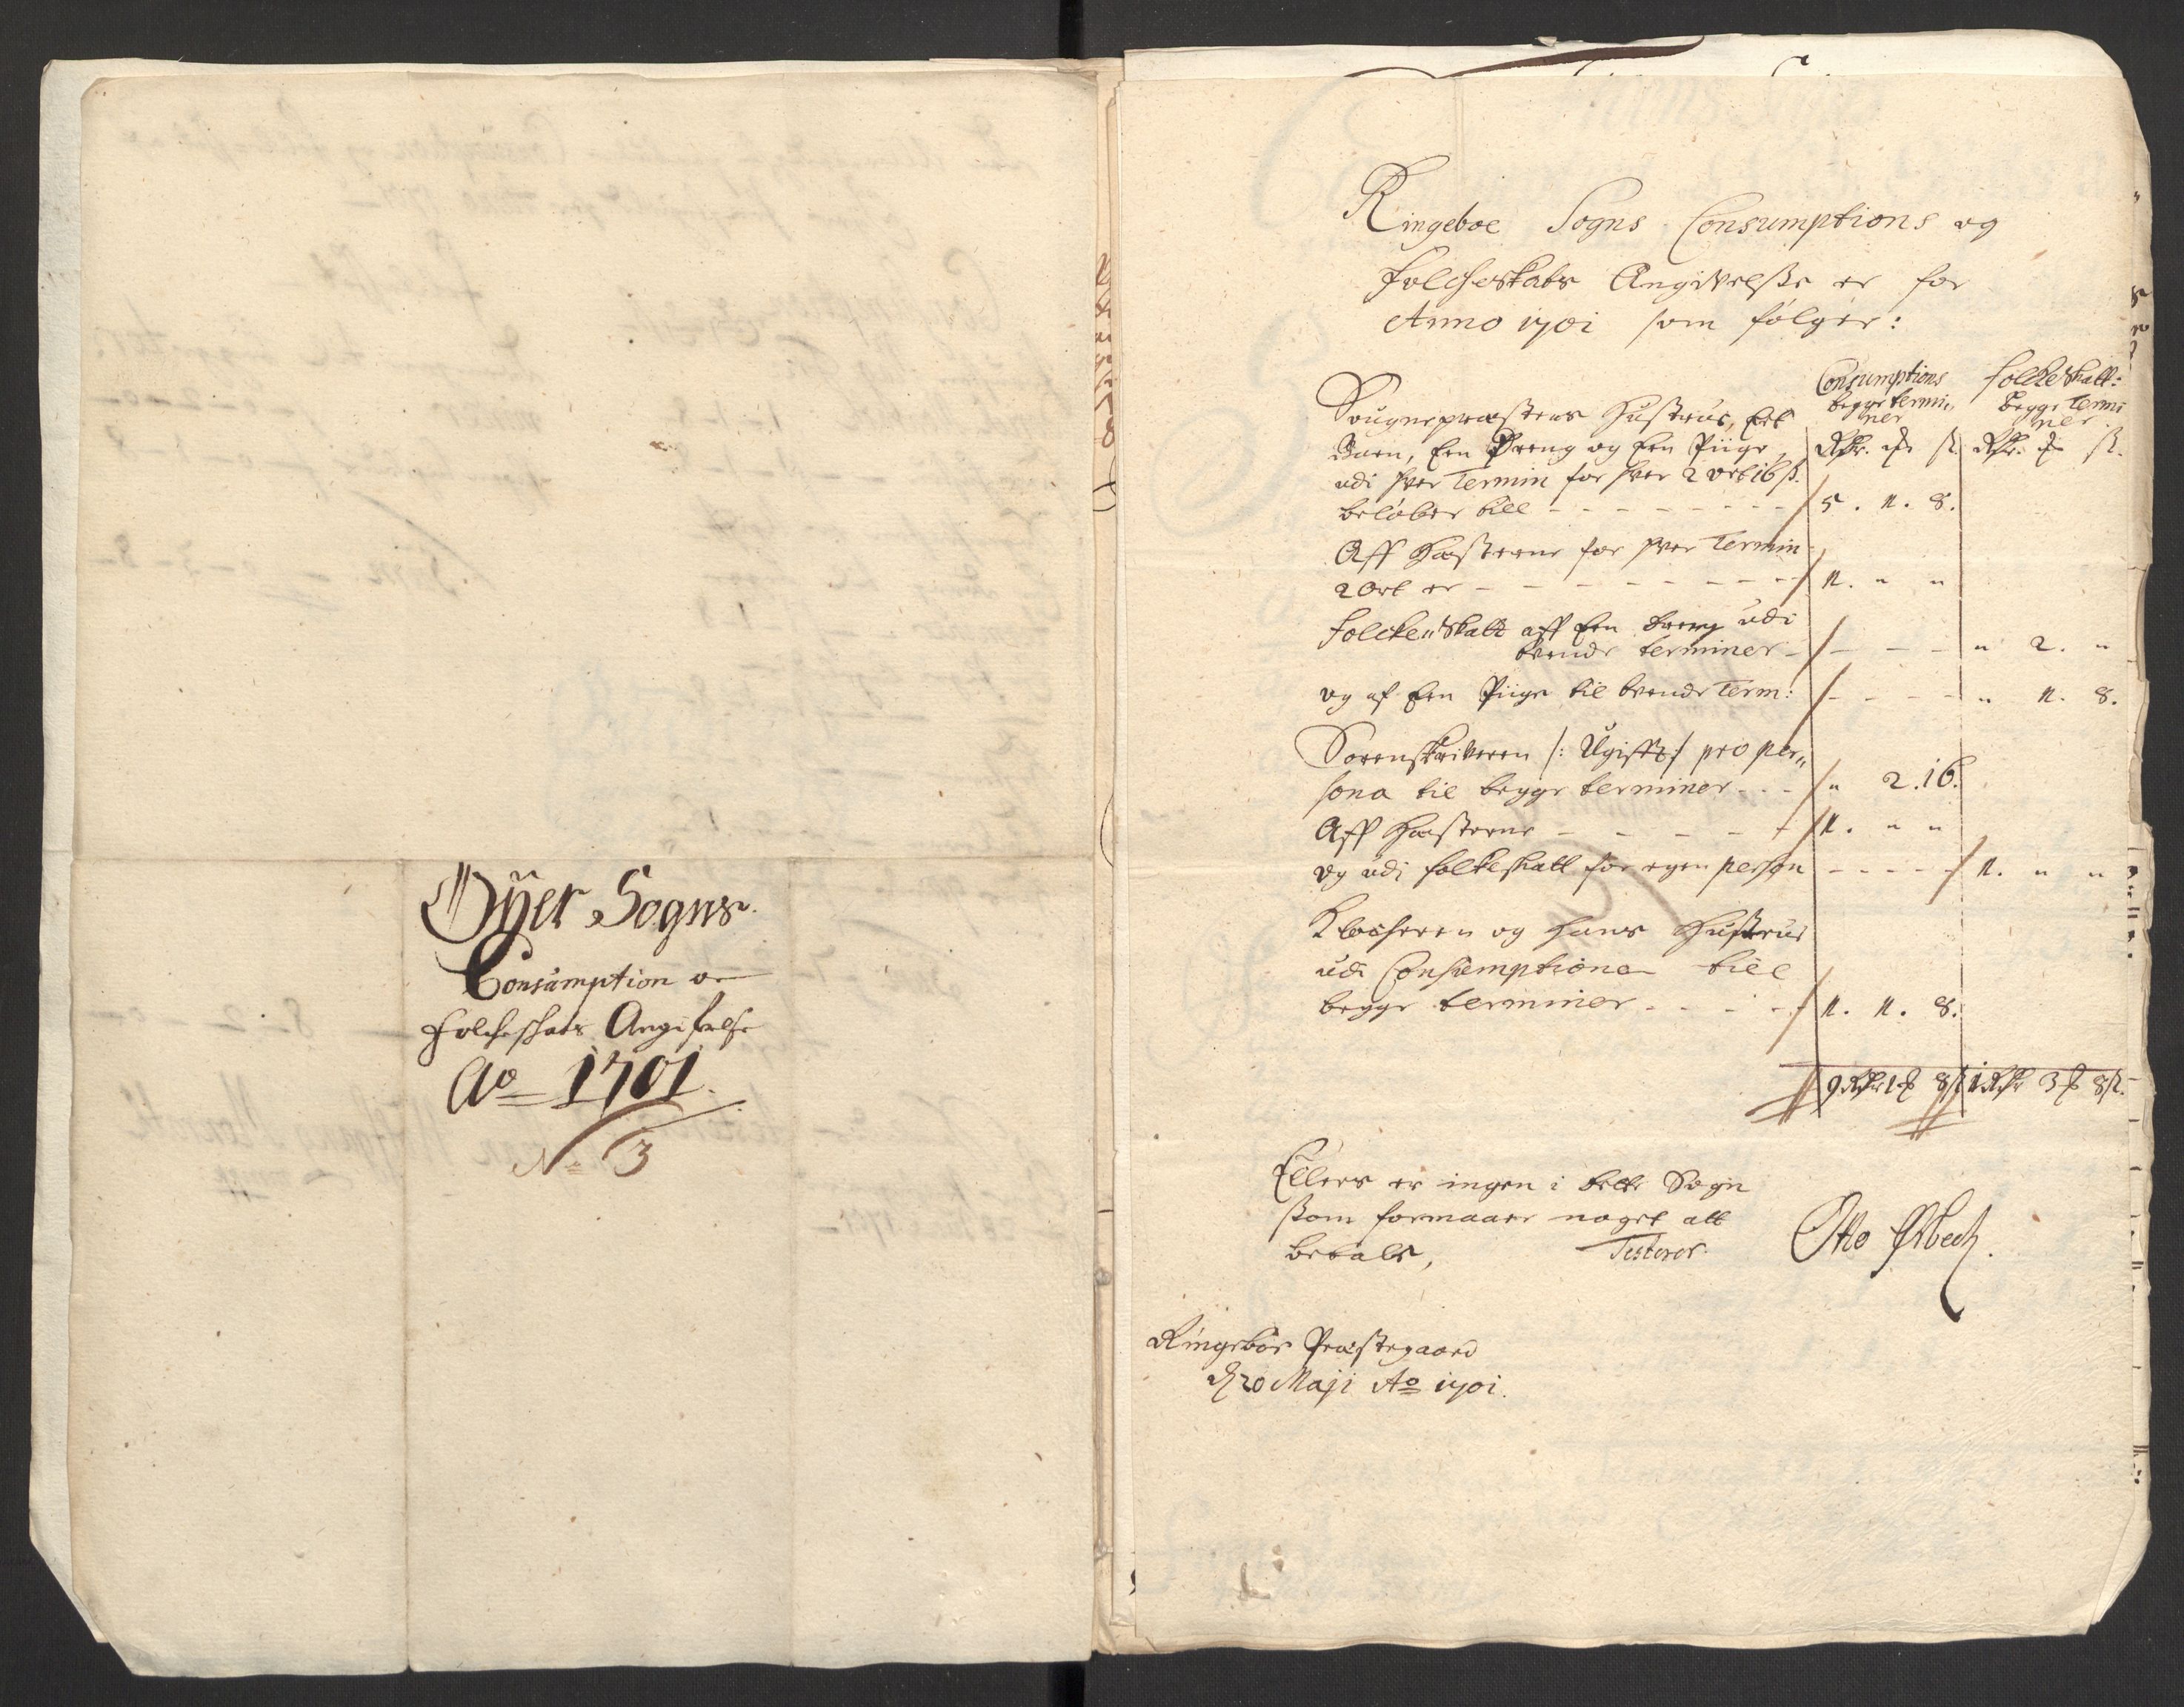 Øyer Sogns
Consumption oc
Folcheschats Angifvelse
Ao 1701.
No 3
Ringeboe Sogns Consumptions og
Folcheskats Angivelsse er for
Anno 1701 som følger:
Consumptions Folckeskatt:
begge termi¬ begge Termi
ner ner.
Sougnepræstens Hustrue, Eet
Barn, Een Dreng og Een Piige, Rdr. ort ß. Rdr. ort ß.
udi hver Termin for hver 2 ort 16 ß.
beløber till - - - - - - - - 5. 1. 8.
Aff Hæsterne for hver Termin
2 Ort er - - - - - - - - - 1. " "
Folcke„skatt aff Een dreng udi
bende terminer - - - - " 2. "
og af Een Piige til bende Term: - - - - " 1. 8.
Sorenskriveren /: Ugifft :/ pro per„
sona til begge terminer - - - " 2. 16.
Aff Hæsterne - - - - - - 1. " "
og udi folkeskatt for egen person - - - - - 1. " "
Klocheren og hans Hustrue
udi Consumptionen till
begge terminer - - - - 1. 1. 8.
9 Rdr 1 ort 8 ß 1 Rdr 3 ort 8 ß.
Ellers er ingen i dette Sogn
ssom formaaer noget att
betale, Testerer Otto Ørbech.
Ringeboe Præstegaard
d 20 Maji Ao 1701.